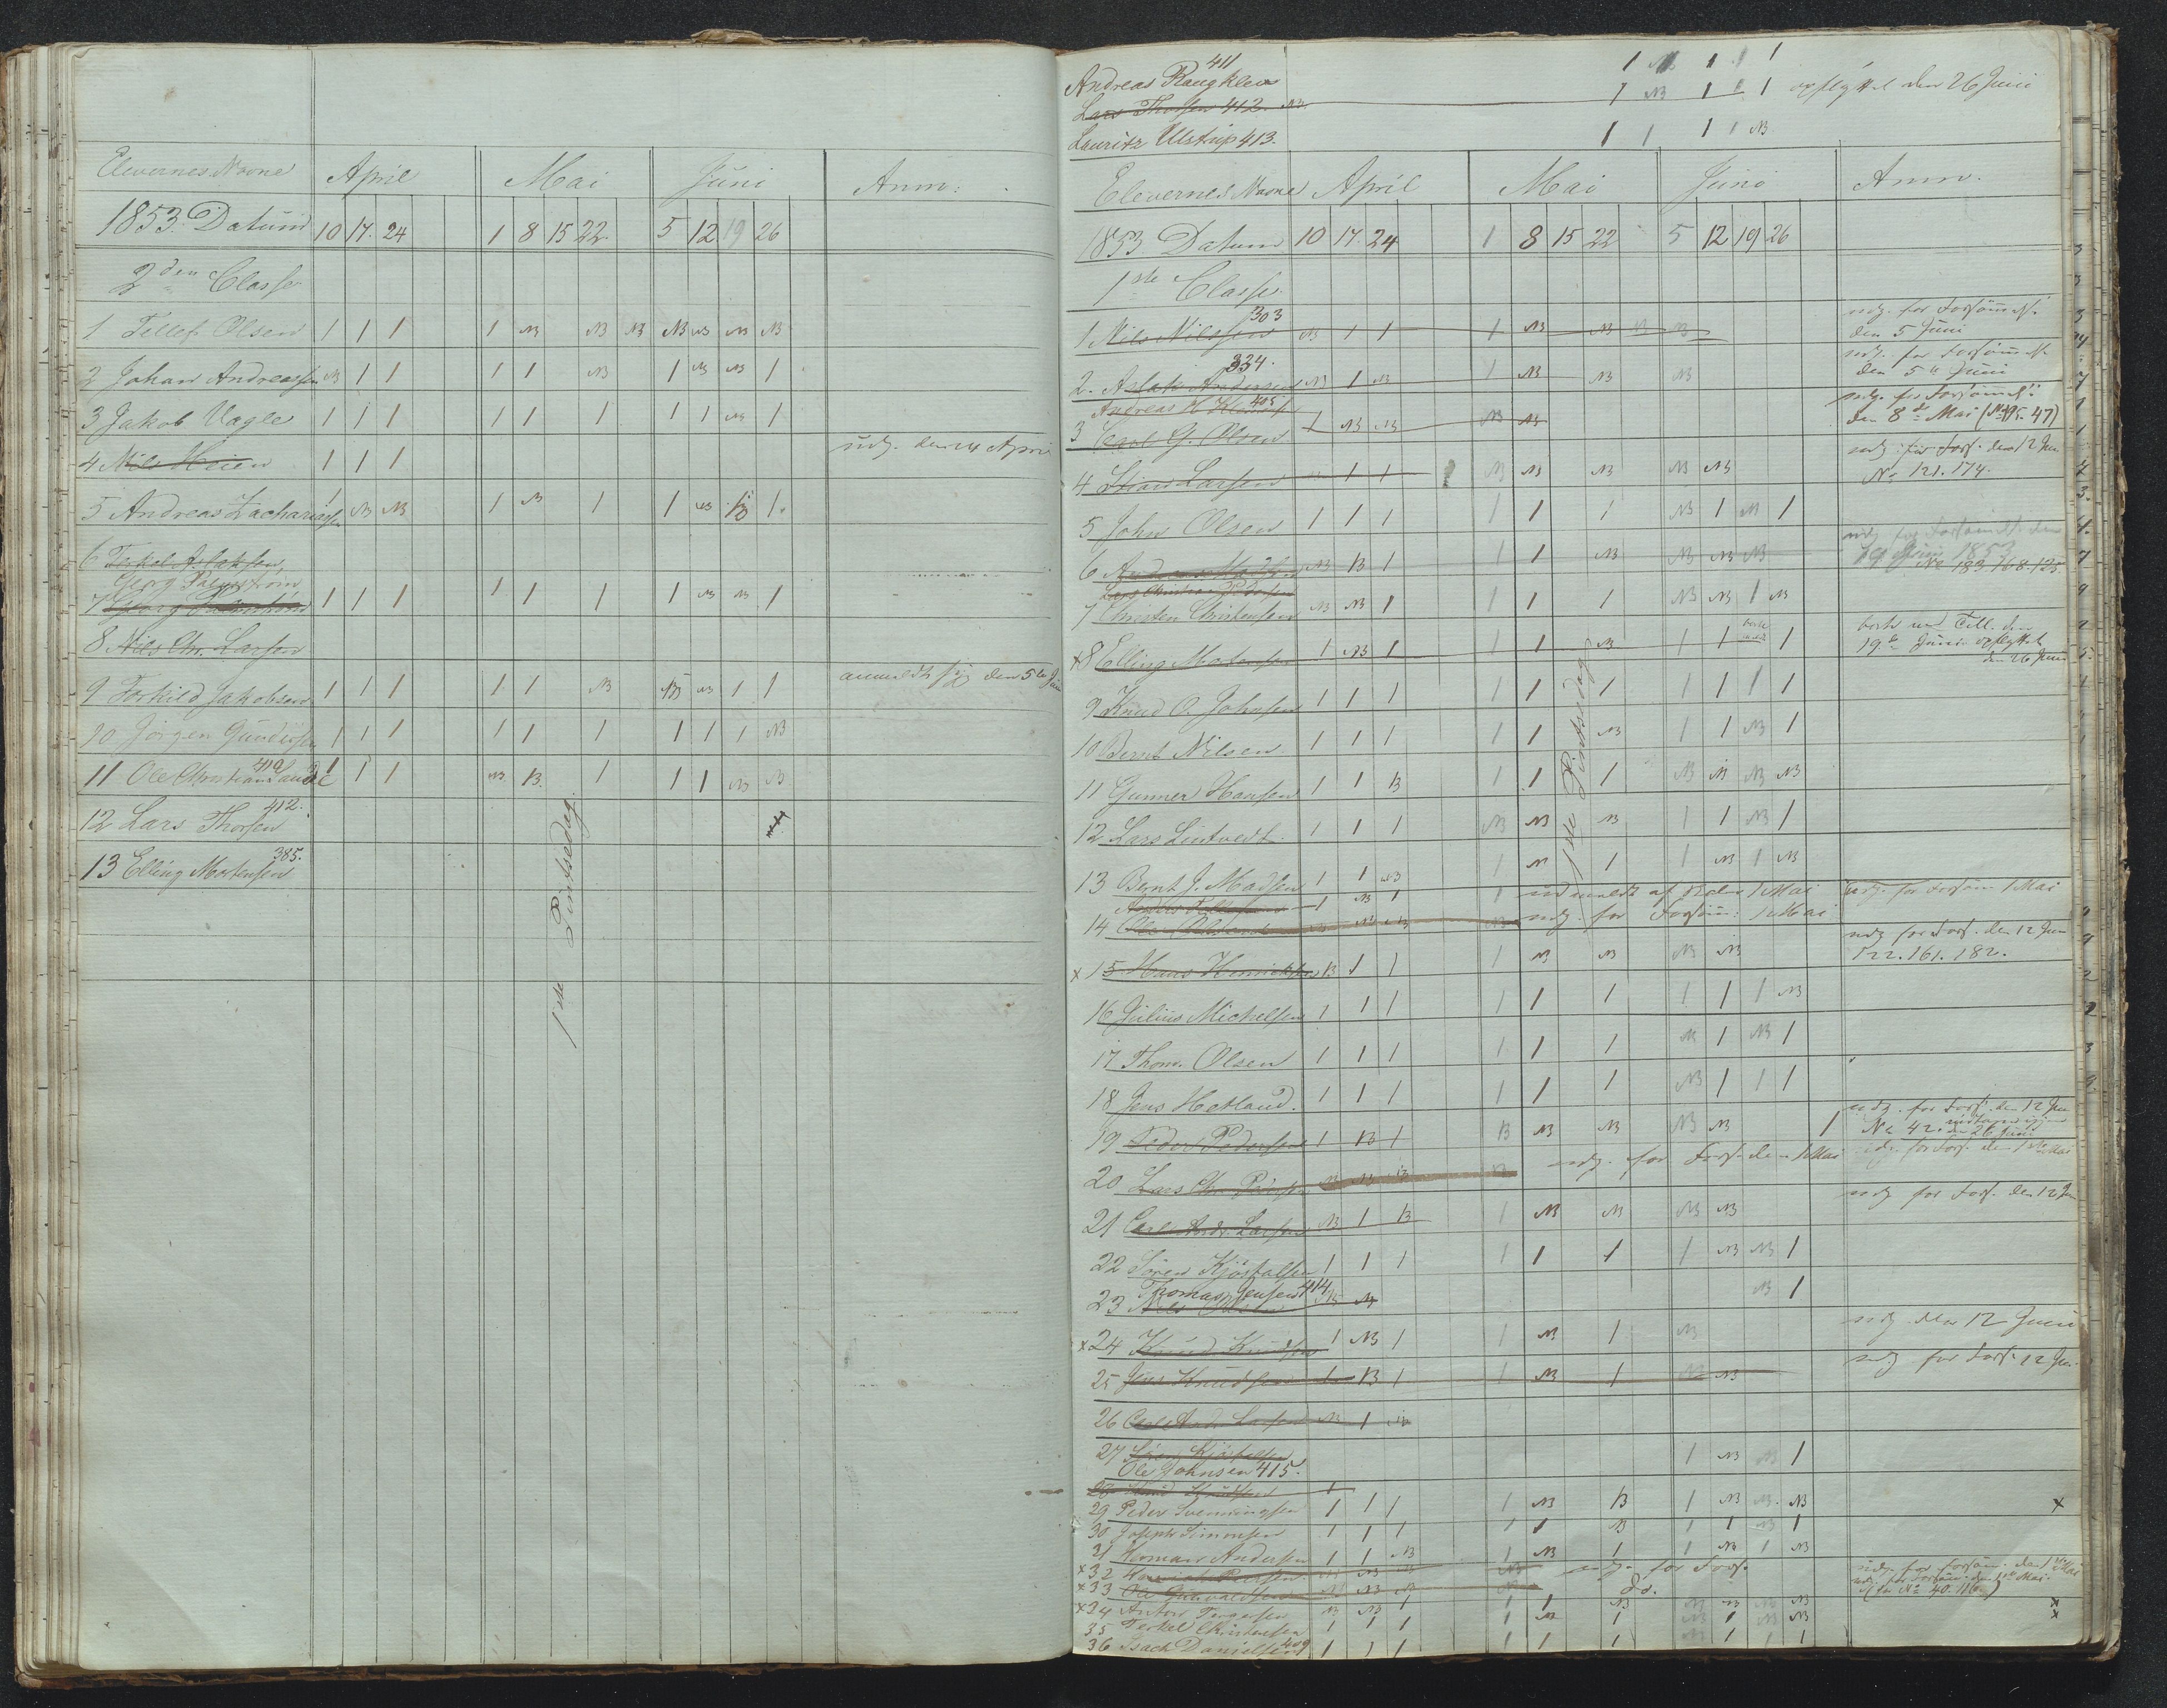 Elevernes Navne April Mai Juni Anm:
1853. Datum 10 17. 24 1 8 15 22 5 12 19 26
2den Classe
1 Tellef Olsen 1 1 1 1 NB NB NB NB NB NB NB
2 Johan Andreassen NB 1 1 1 1 NB 1 NB NB 1
3 Jakob Vagle 1 1 1 1 1 1 1 1 NB 1
4 Nils Heien 1 1 1 udg. den 24 April
5 Andreas Zachariassen 1 NB NB 1 NB 1 1 NB 1
6 Terkel Aslaksen
Georg Palmström
7 1 1 1 1 1 1 1 NB NB 1
8 Nils Chr. Larsen
9 Torkild Jakobsen 1 1 1 1 1 NB NB NB 1 1 anmeldt sig den 5te Juni
10 Jörgen Gundersen 1 1 1 1 1 1 1 1 1 NB
11 Ole Christian Lande 410 1 1 1 NB NB 1 1 1 NB NB
12 Lars Thorsen 412.
13 Elling Mortensen 385.
1ste Pintsedag.
411
Andreas Raugklev 1 NB 1 1 1
Lars Thorsen 412. NB 1 NB 1 1 1 opflyttet den 26 Juni
Lauritz Ulstrup 413. 1 1 1 1 NB
Elevernes Navne April Mai Juni Anm.
1853 Datum 10 17. 24 1 8 15 22 5 12 19 26
1ste Classe.
1 Nils Nilssen 303 NB 1 1 1 NB NB NB NB udg. for Forsömmels.
den 5 Juni
2. Aslak Andersen 334. NB 1 NB 1 NB NB NB udg. for Forsömmels.
den 5te Juni
Andreas 405
3 Carl G. Olsen 1 NB NB NB NB udg. for Forsömmels.
den 8de Mai (No 195. 47)
4 Larsen NB 1 1 NB NB NB NB NB udg. for Fors. den 12 Jun
No 121. 174.
5 John Olsen 1 1 1 1 1 1 NB 1 NB 1
6 NB NB 1 1 1 NB NB NB NB udg. for Forsömmels. den
19 Juni 1853
No 183. 168. 125.
7 Christen Christensen NB NB 1 1 1 1 NB NB 1 NB
x 8 Elling Mortensen 1 NB 1 1 1 NB 1 1 1 borte med Till. den
19de Juni opflyttet
den 26 Juni
9 Knud O. Johnsen 1 1 1 1 1 1 1 1 1 1
10 Bernt Nilsen 1 1 1 1 1 NB 1 1 NB 1
11 Gunner Hansen 1 1 NB 1 1 1 NB NB NB NB
12 Lars Lintvedt 1 1 1 NB NB NB 1 1 NB 1
1ste Pintsedag
13 Bernt J. Madsen 1 1 NB 1 NB 1 1 NB 1 NB
1 NB 1 1 udmeldt af 1 Mai udg. for Forsöm 1 Mai
14 NB NB NB udg. for Forsöm: 1 Mai
x 15 Hans Henrichsen NB 1 1 1 NB NB NB NB udg for Fors. den 12 Jun
122. 161. 182.
16 Julius Michelsen 1 1 1 1 1 1 1 1 1 NB
17 Thom. Olsen 1 1 1 1 1 1 NB 1 NB 1
18 Jens Hetland. 1 1 1 1 1 1 NB 1 1 1
19 Peder Pedersen 1 NB 1 NB NB NB NB NB 1 udg. for Fors. den 12 Jun
No 42. den 26 Juni
20 Lars Chr. NB NB NB NB udg. for Fors. den 1 Mai udg. for Fors. den 1ste Mai
21 Carl Andr. Larsen NB 1 NB 1 NB NB NB NB udg for Fors. den 12 Jun
22 Sören Kjöstolfsen 1 1 1 1 1 1 1 NB NB 1
Thomas Jensen 414
23 Nils Olsen NB NB NB 1
x 24 Knud Knudsen 1 NB 1 1 NB 1 NB udg den 12 Juni
25 Jens Knudsen 1 NB 1 1 NB 1 NB NB udg for Fors. 12 Jun.
26 Carl Andr. Larsen NB 1 NB
27 Sören Kjöstolfsen 1 NB NB 1
Ole Johnsen 415.
28 Knud Knudsen 1
29 Peder Svenningsen 1 1 1 1 NB NB 1 NB NB NB x
30 Joseph Simonsen 1 1 1 1 1 NB 1 1 NB 1
31 Herman Andersen 1 1 NB 1 NB 1 1 NB 1 NB
x 32 NB NB NB NB udg. for Fors. udg. for Forsöm. den 1ste Mai
x 33 Ole Gunvaldsen NB NB NB NB do. udg. for Forsöm. den 1ste Mai.
(for No 40. 116.)
x 34 Anton Torgersen NB NB 1 1 1 NB NB NB NB NB x
35 Terkel Christensen 1 1 1 1 NB 1 NB 1 NB NB x
36 Isach Danielsen 409 1 1 1 1 1 1 NB 1 1 1